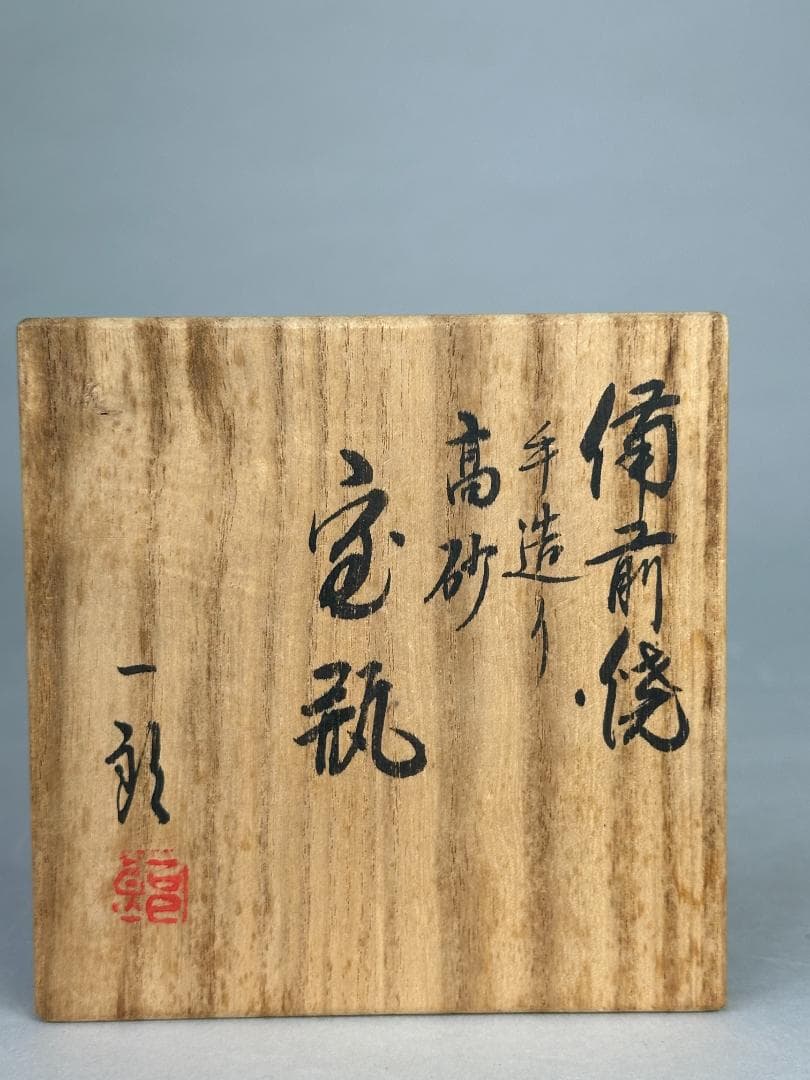 備前焼
手造り
高砂
宝瓶
一郎